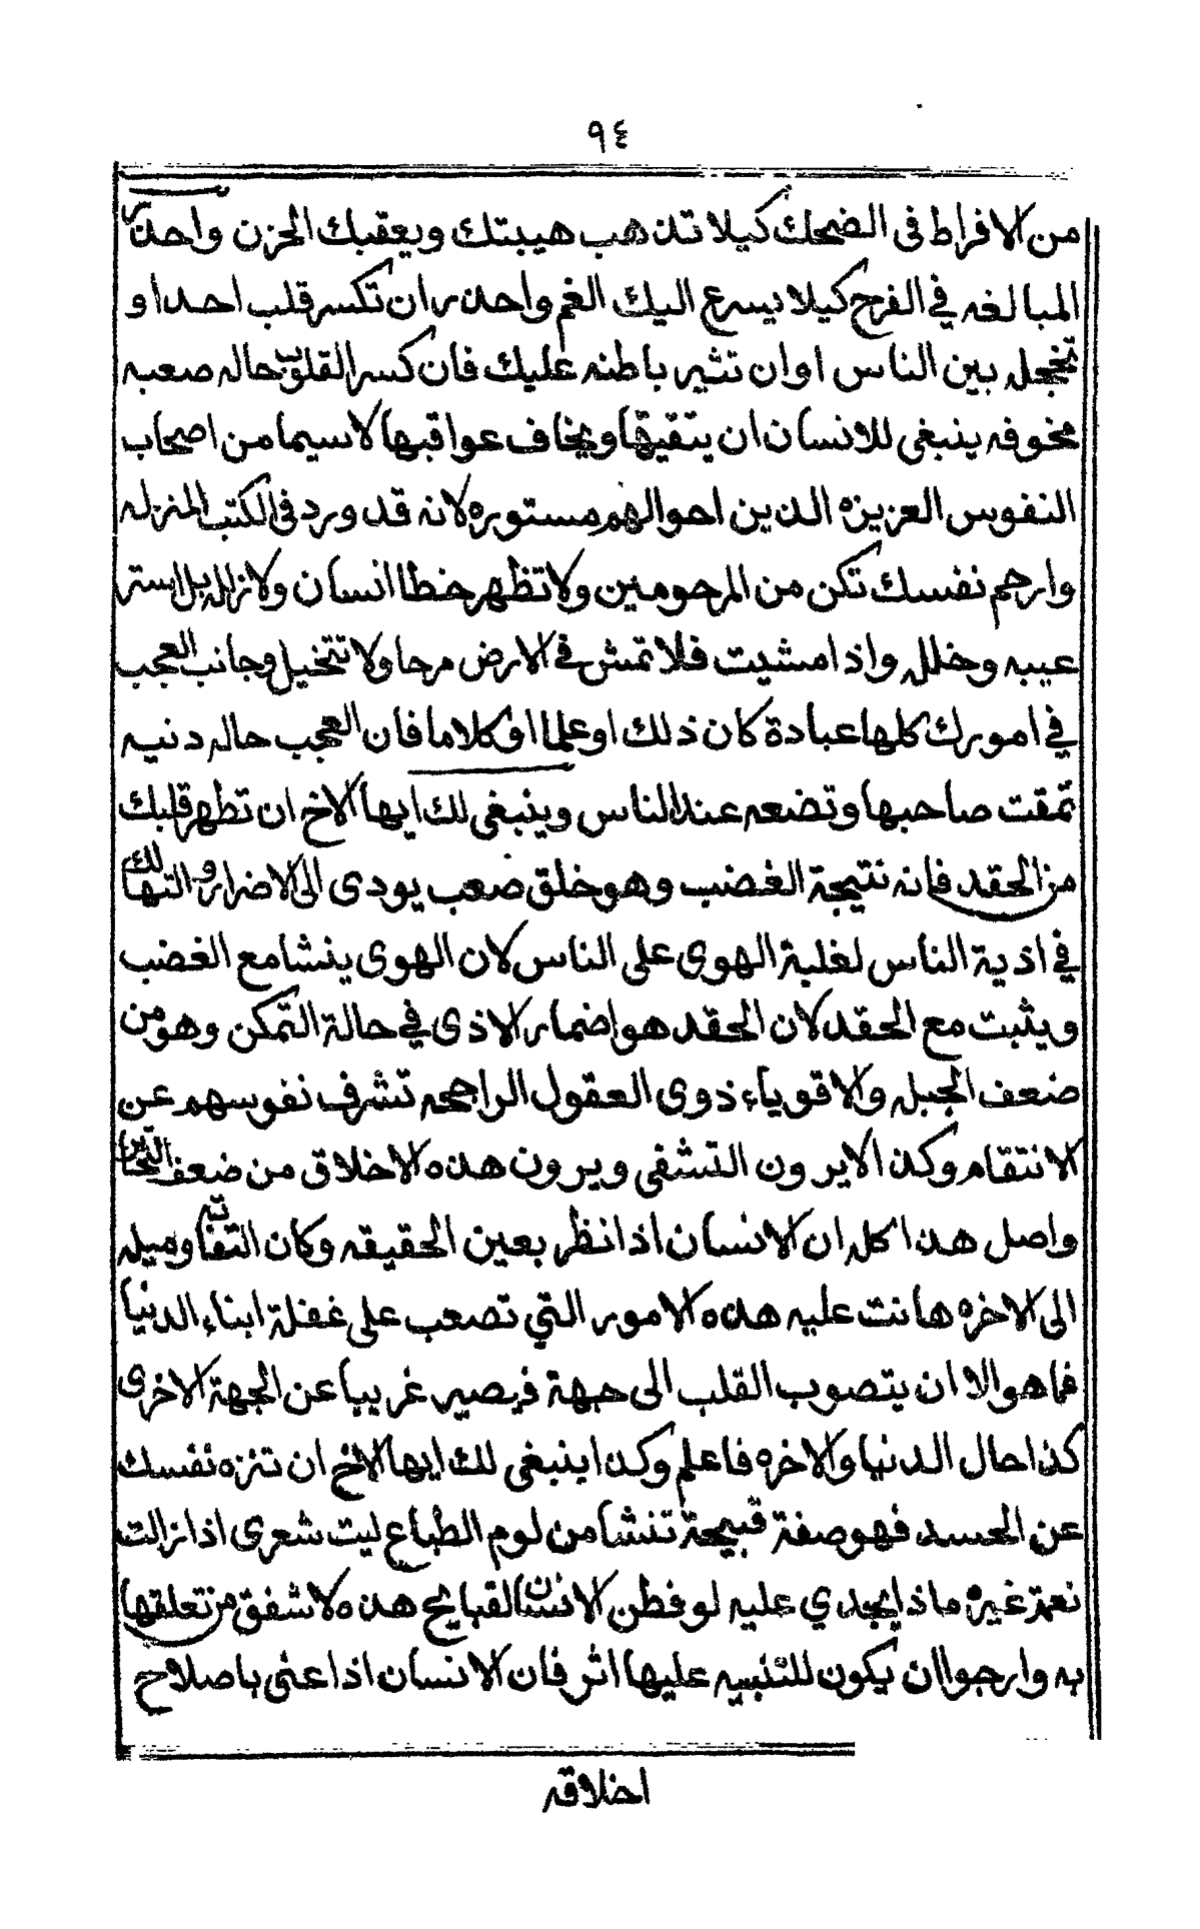 ٩٤
من الافراط فى الضحك كيلا تذهب هيبتك ويعقبك الحزن واحذر
المبالغه في الفرح كيلا يسرع اليك الغم واحذر ان تكسر قلب احد او
تخجله بين الناس او ان تثير باطنه عليك فان كسر القلوب حاله صعبه
مخوفه ينبغى للانسان ان يتقيها ويخاف عواقبها لاسيما من اصحاب
النفوس العزيزه الذين احوالهم مستوره لانه قد ورد فى الكتب المنزله
وارحم نفسك تكن من المرحومين ولا تظهر خطا انسان ولا زلله بل استر
عيبه وخلله واذا مشيت فلا تمش في الارض مرحا ولا تتخيل وجانب العجب
في امورك كلها عبادة كان ذلك او علما او كلاما فان العجب حاله دنيه
تمقت صاحبها وتضعه عند الناس وينبغى لك ايها الاخ ان تطهر قلبك
من الحقد فانه نتيجة الغضب وهو خلق صعب يودى الى الاضرار والتهالك
في اذية الناس لغلبة الهوى على الناس لان الهوى ينشا مع الغضب
ويثبت مع الحقد لان الحقد هو اضمار الاذى في حالة التمكن وهو من
ضعف الجبله والاقوياء ذوى العقول الراجحه تشرف نفوسهم عن
الانتقام وكذا لا يرون التشفى ويرون هذه الاخلاق من ضعف
واصل هذا كله ان الانسان اذا نظر بعين الحقيقه وكان التفاته وميله
الى الاخره هانت عليه هذه الامور التي تصعب على غفلة ابناء الدنيا
فما هو الا ان يتصوب القلب الى جهة فيصير غريبا عن الجهة الاخرى
كذا حال الدنيا والاخره فاعلم وكذا ينبغى لك ايها الاخ ان تنزه نفسك
عن الحسد فهو صفة قبيحة تنشا من لوم الطباع ليت شعرى اذا زالت
نعمة غيره ماذا يجدي عليه لو فطن الانسان لقبايح هذه لاشفق من تعلقها
به وارجوا ان يكون للتنبيه عليها اثر فان الانسان اذا اعنى باصلاح
اخلاقه